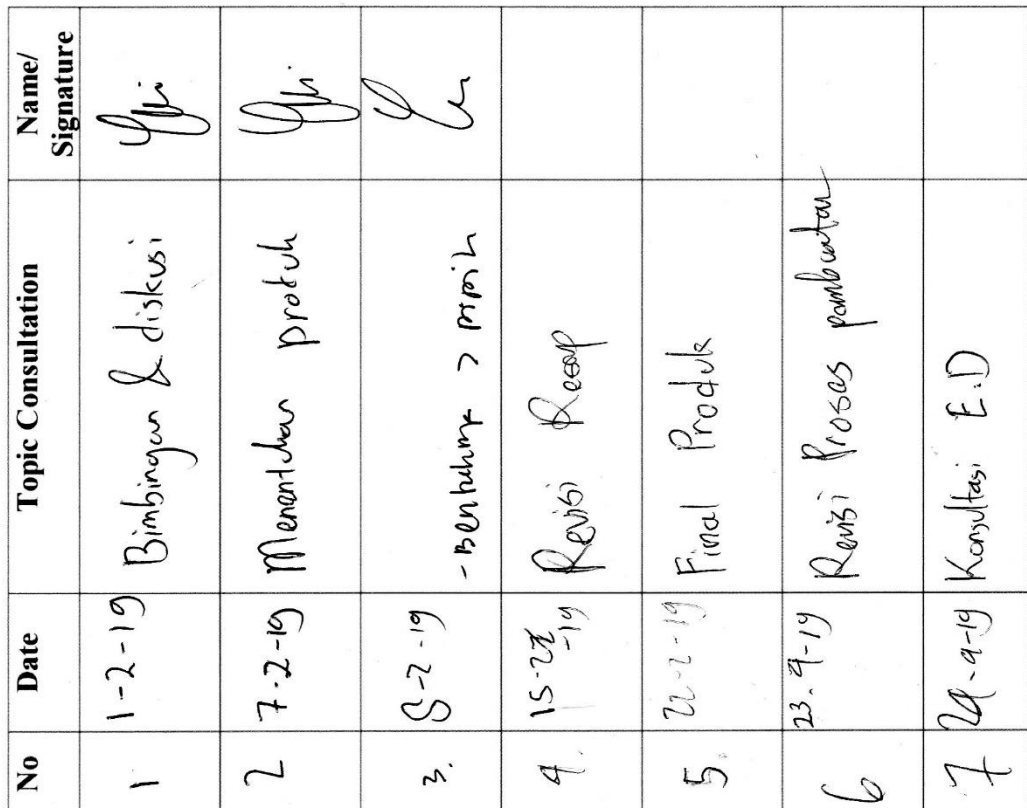 No Date Topic Consultation Name/
Signature
1 1-2-19 Bimbingan & diskusi
2 7-2-19 Menentukan produk
3. 8-2-19 - Bentuknya > pipih
4. 15-2-19 Revisi Resep
5. 22-2-19 Final Produk
6 23-4-19 Revisi Proses pembuatan
7 29-4-19 Konsultasi E.D